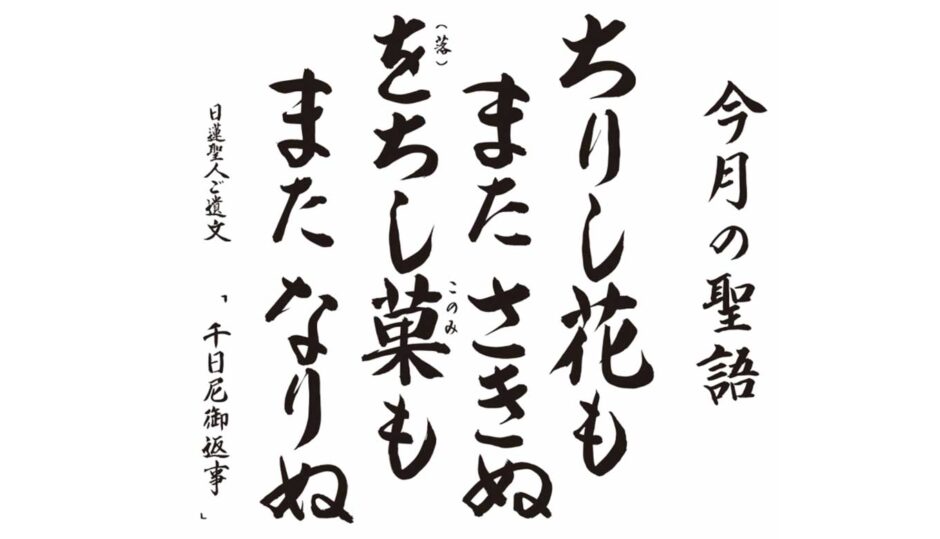 今月の聖語
ちりし花も
またさきぬ
をちし菓も
（落）
このみ
またなりぬ
日蓮聖人ご遺文
「千日尼御返事」